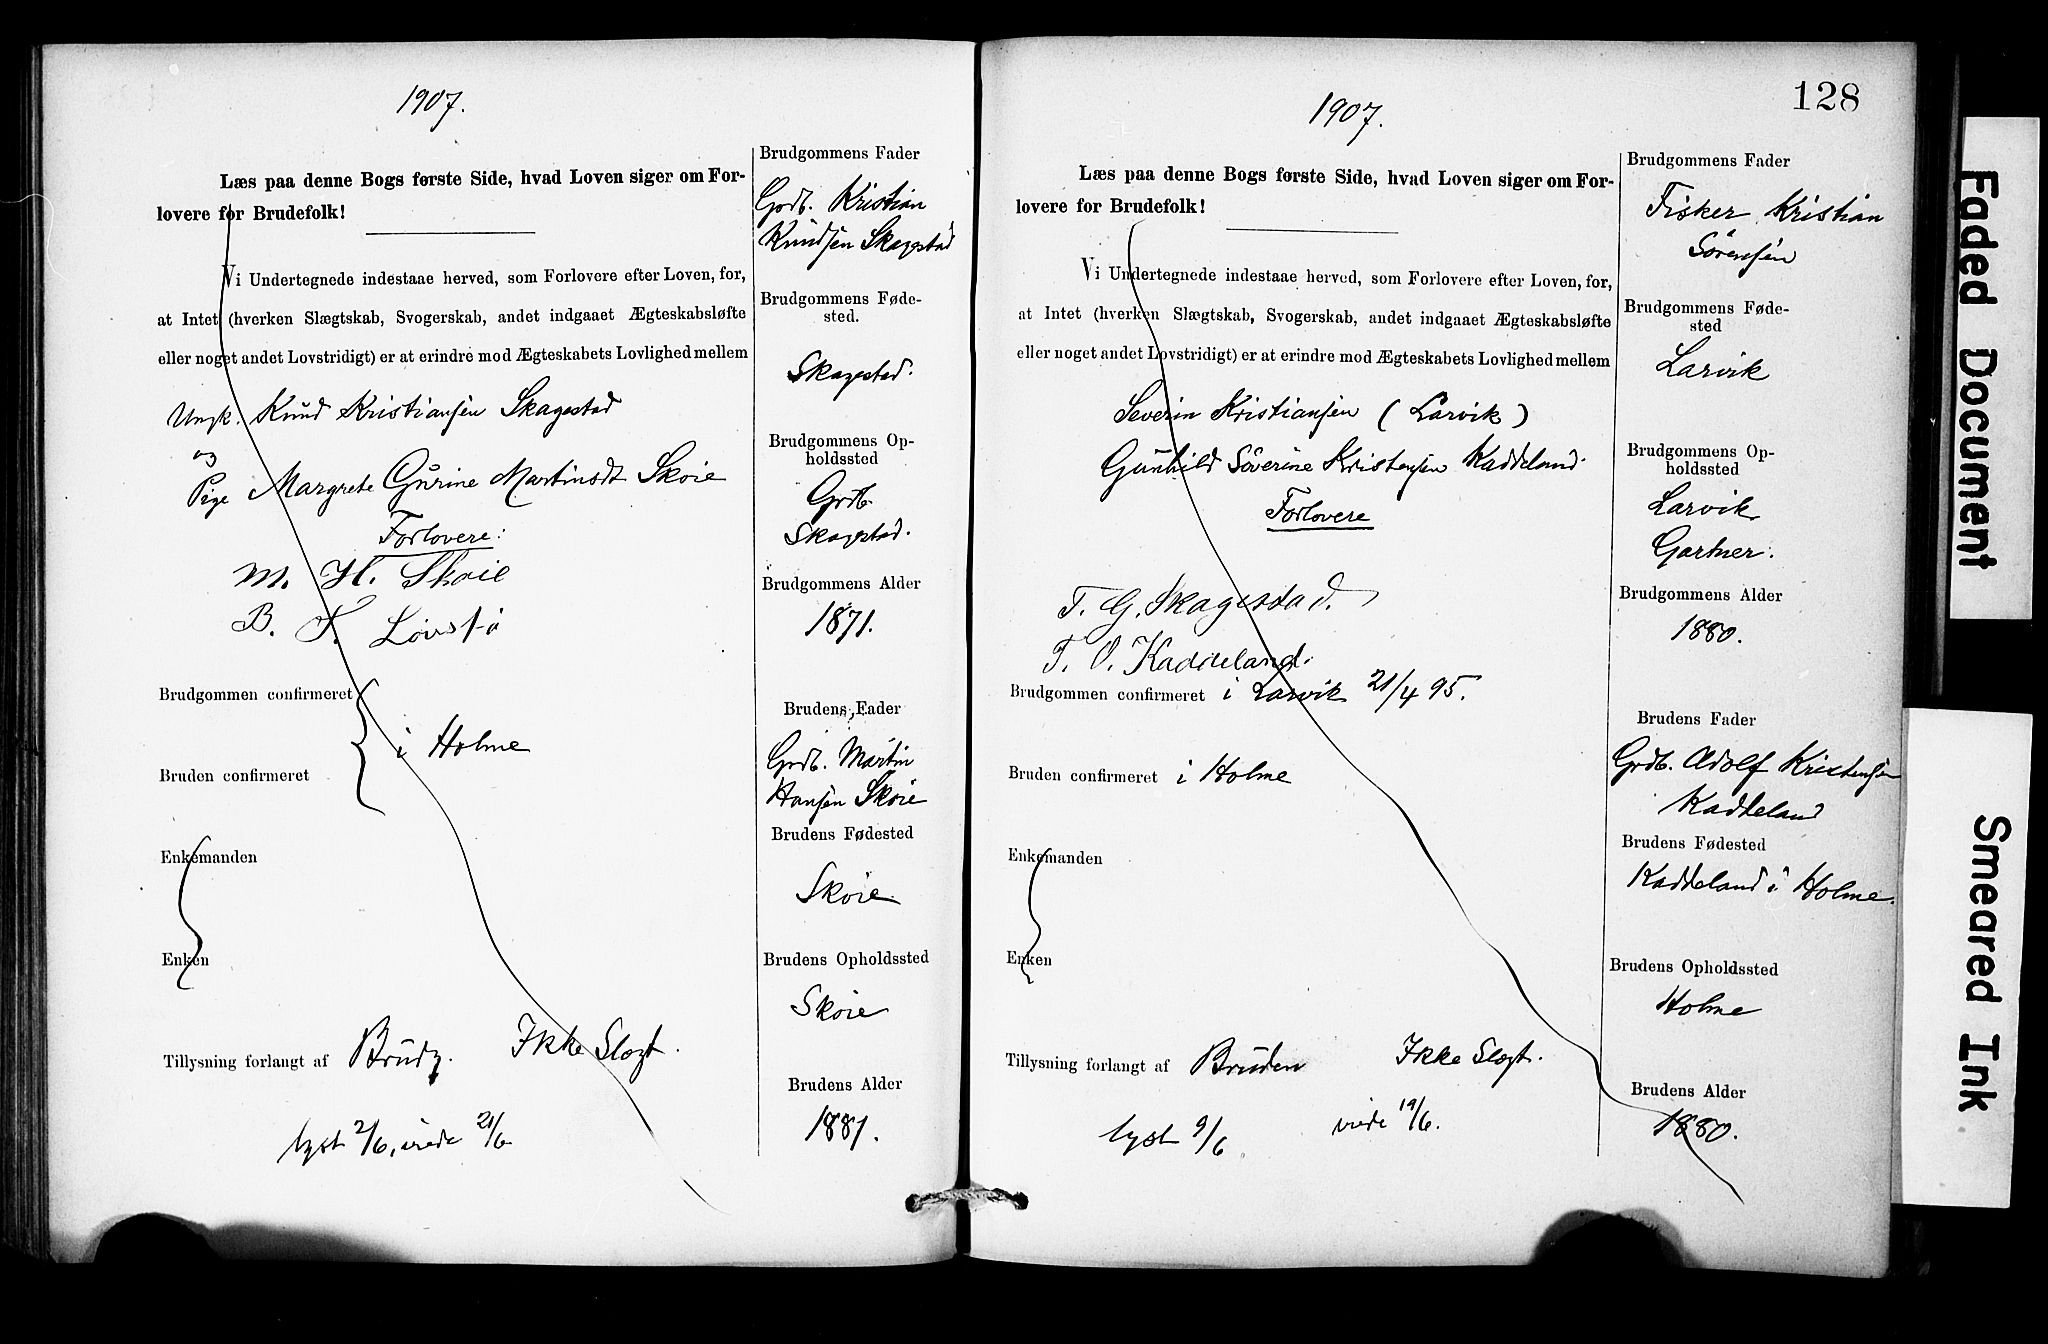 1907.
Læs paa denne Bogs første Side, hvad Loven siger om For-
lovere for Brudefolk!
Vi Undertegnede indestaae herved, som Forlovere efter Loven, for,
at Intet (hverken Slægtskab, Svogerskab, andet indgaaet Ægteskabsløfte
eller noget andet Lovstridigt) er at erindre mod Ægteskabets Lovlighed mellem
Ungk. Knud Kristiansen Skagestad
og
Pige Margrete Gurine Martinsdt Skoie
Forlovere:
M. H. Skoie
B. T. Løvstø
Brudgommen confirmeret
i Holme
Bruden confirmeret
Enkemanden
Enken
Tillysning forlangt af Brudg. Ikke Slægt.
lyst 2/6, viede 21/6
Brudgommens Fader
Grdb. Kristian
Knudsen Skagestad
Brudgommens Føde-
sted.
Skagestad.
Brudgommens Op-
holdssted
Grdb.
Skagestad.
Brudgommens Alder
1871.
Brudens Fader
Grdb. Martin
Hansen Skoie
Brudens Fødested
Skoie
Brudens Opholdssted
Skoie
Brudens Alder
1881.
1907.
128
Læs paa denne Bogs første Side, hvad Loven siger om For-
lovere for Brudefolk!
Vi Undertegnede indestaae herved, som Forlovere efter Loven, for,
at Intet (hverken Slægtskab, Svogerskab, andet indgaaet Ægteskabsløfte
eller noget andet Lovstridigt) er at erindre mod Ægteskabets Lovlighed mellem
Severin Kristiansen (Larvik)
Gunhild Søverine Kristensen Kaddeland.
Forlovere
T. G. Skagestad.
T. O. Kaddeland.
Brudgommen confirmeret i Larvik 21/4 95.
Bruden confirmeret i Holme
Enkemanden
Enken
Tillysning forlangt af Bruden Ikke Slægt.
lyst 9/6 viede 19/6.
Brudgommens Fader
Fisker Kristian
Sørensen
Brudgommens Føde-
sted
Larvik
Brudgommens Op-
holdssted
Larvik
Gartner.
Brudgommens Alder
1880.
Brudens Fader
Grdb. Adolf Kristensen
Kaddeland
Brudens Fødested
Kaddeland i Holme.
Brudens Opholdssted
Holme
Brudens Alder
1880.
Faded Document
Smeared Ink